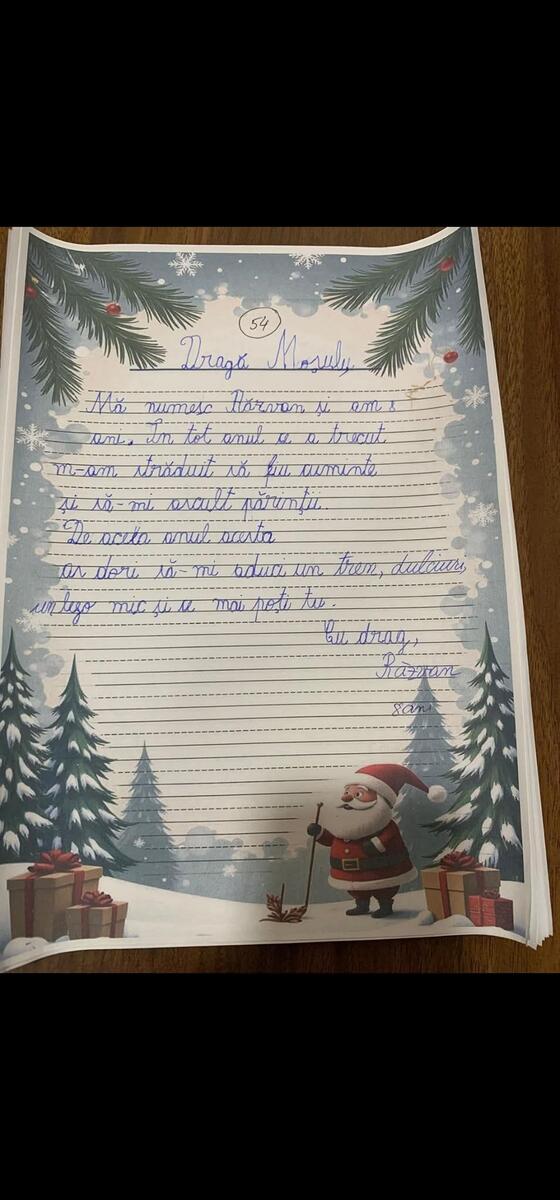 54
Dragă Moșule,
Mă numesc Răzvan și am 8
ani. În tot anul ce a trecut
m-am străduit să fiu cuminte
și să-mi ascult părinții.
De aceea anul acesta
aș dori să-mi aduci un tren, dulciuri,
un lego mic și ce mai poți tu.
Cu drag,
Răzvan
8 ani